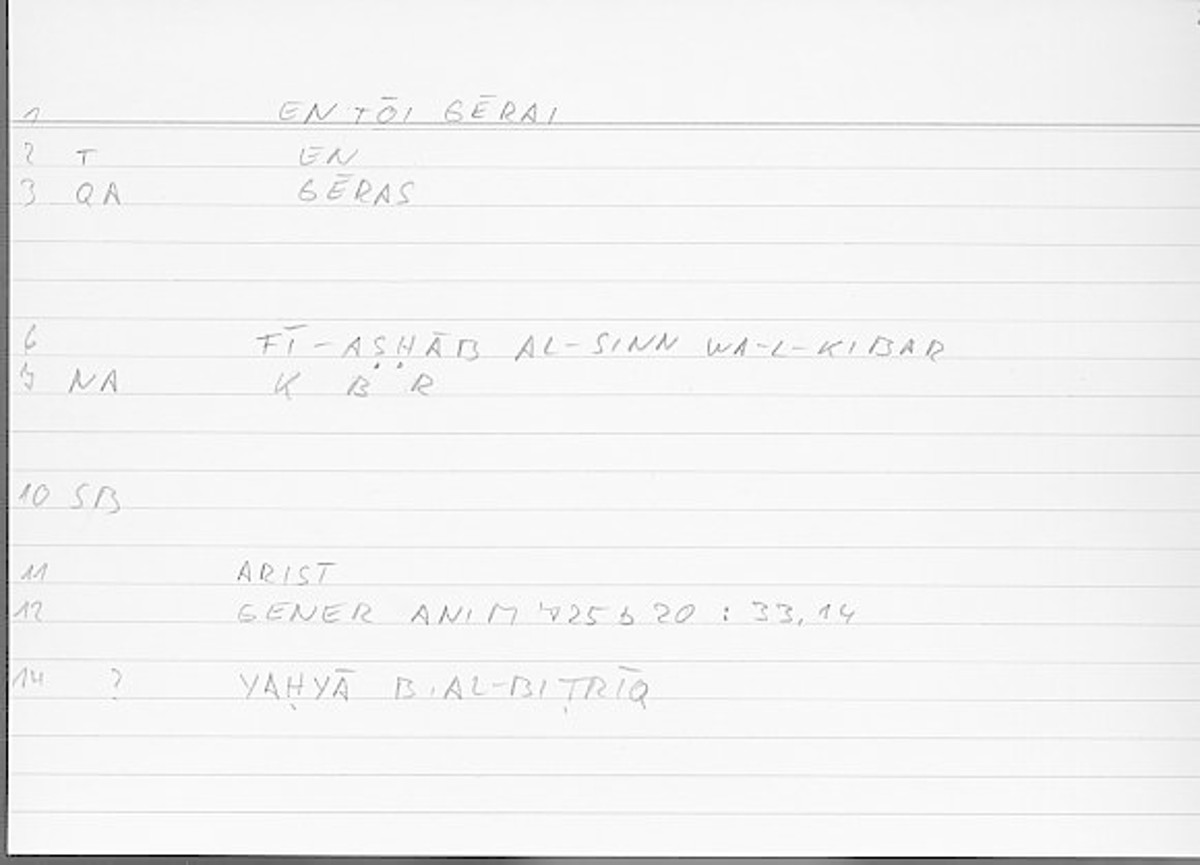 1 EN TŌI GĒRAI
2 T EN
3 QA GĒRAS
6 FĪ-AṢḤĀB AL-SINN WA-L-KIBAR
7 NA K B R
10 SB
11 ARIST
12 GENER ANIM 725 b 20 : 33,14
14 ? YAḤYĀ B. AL-BIṬRĪQ